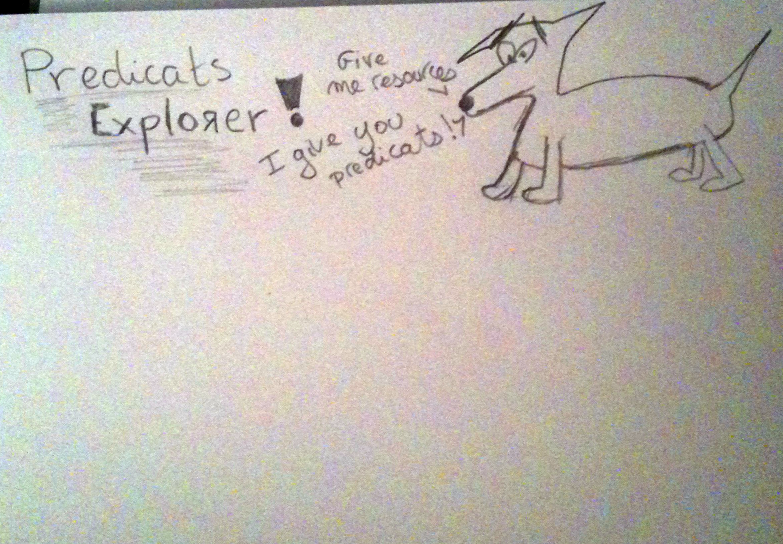 Predicats
Exploяer !
Give
me resources
I give you
predicats!